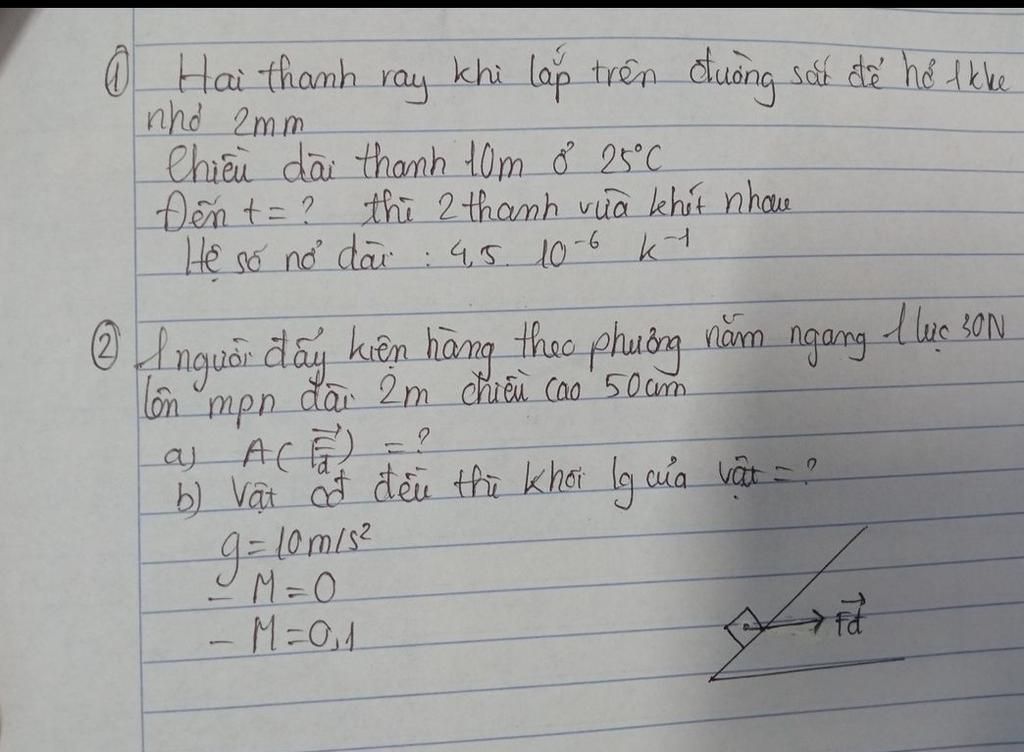 ① Hai thanh ray khi lắp trên đường sắt để hở 1 khe
nhỏ 2mm
Chiều dài thanh 10m ở 25°C
Đến t = ? thì 2 thanh vừa khít nhau
Hệ số nở dài : 4,5. 10⁻⁶ k⁻¹
② 1 người đẩy kiện hàng theo phương nằm ngang 1 lực 30N
lên mpn dài 2m chiều cao 50cm
a) A( F⃗đ ) = ?
b) Vật cđ đều thì khối lg của vật = ?
g = 10m/s²
- M = 0
- M = 0,1
F⃗đ